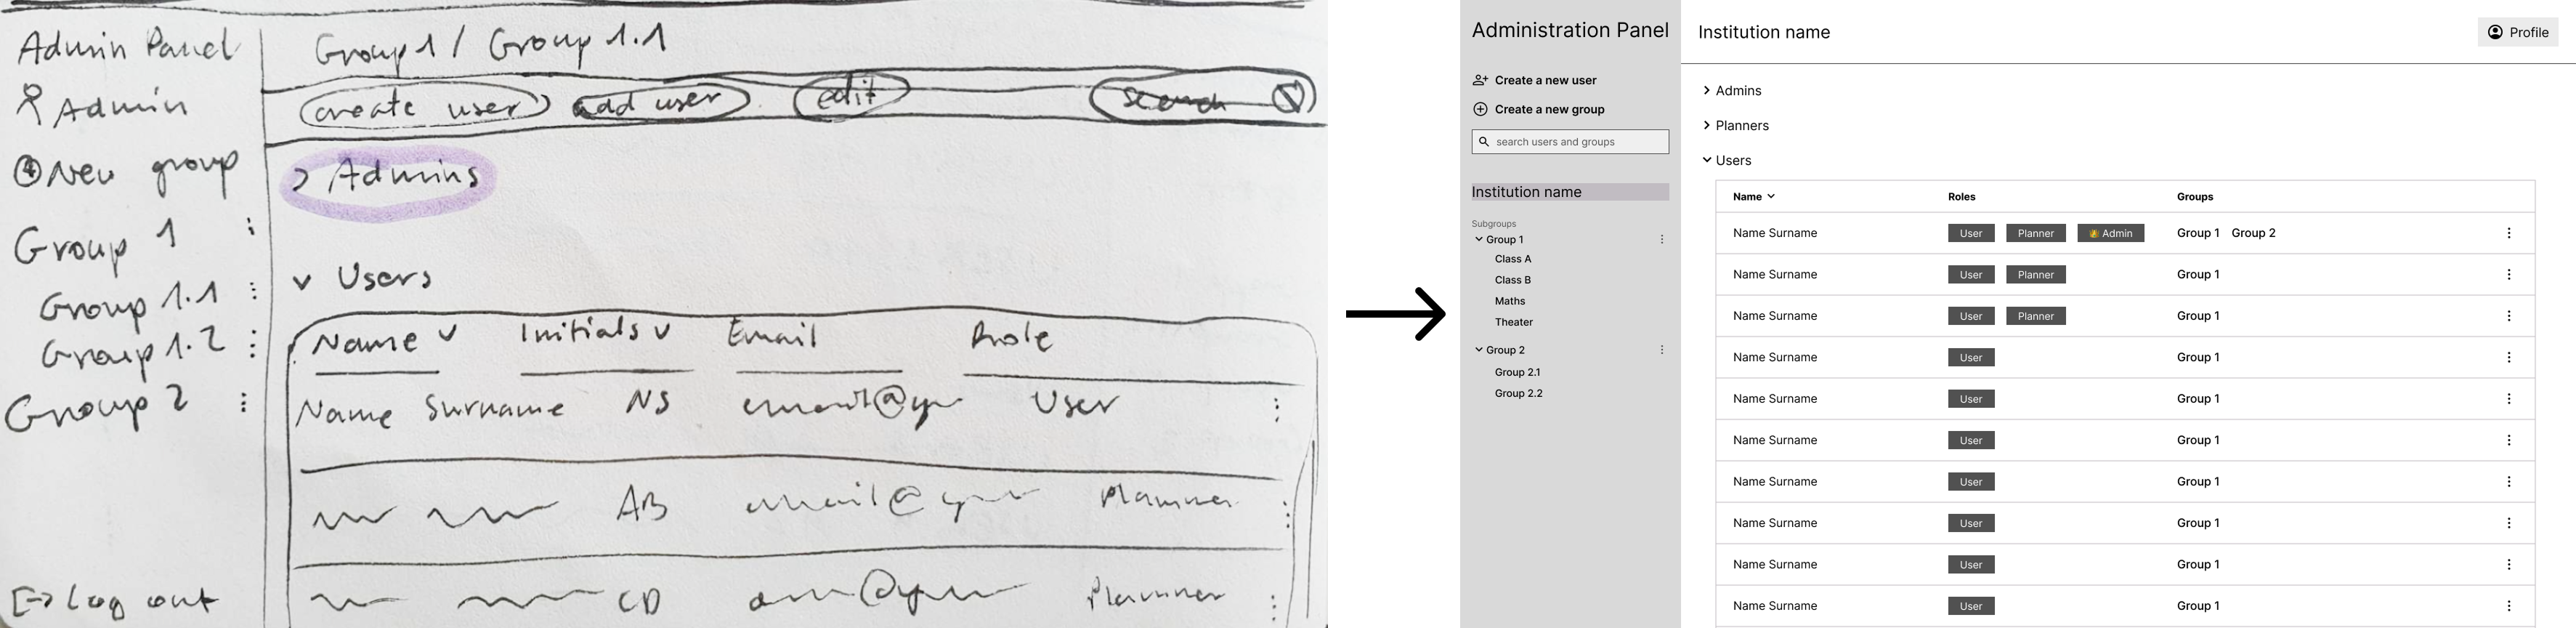 Admin Panel
Admin
New group
Group 1
Group 1.1
Group 1.2
Group 2
Log out
Group 1 / Group 1.1
create user
add user
edit
search
> Admins
v Users
Name Initials Email Role
Name Surname NS User
AB email@ Planner
CD Planner
Administration Panel
Create a new user
Create a new group
search users and groups
Institution name
Subgroups
Group 1
Class A
Class B
Maths
Theater
Group 2
Group 2.1
Group 2.2
Institution name
Profile
Admins
Planners
Users
Name Roles Groups
Name Surname User Planner Admin Group 1 Group 2
Name Surname User Planner Group 1
Name Surname User Planner Group 1
Name Surname User Group 1
Name Surname User Group 1
Name Surname User Group 1
Name Surname User Group 1
Name Surname User Group 1
Name Surname User Group 1
Name Surname User Group 1